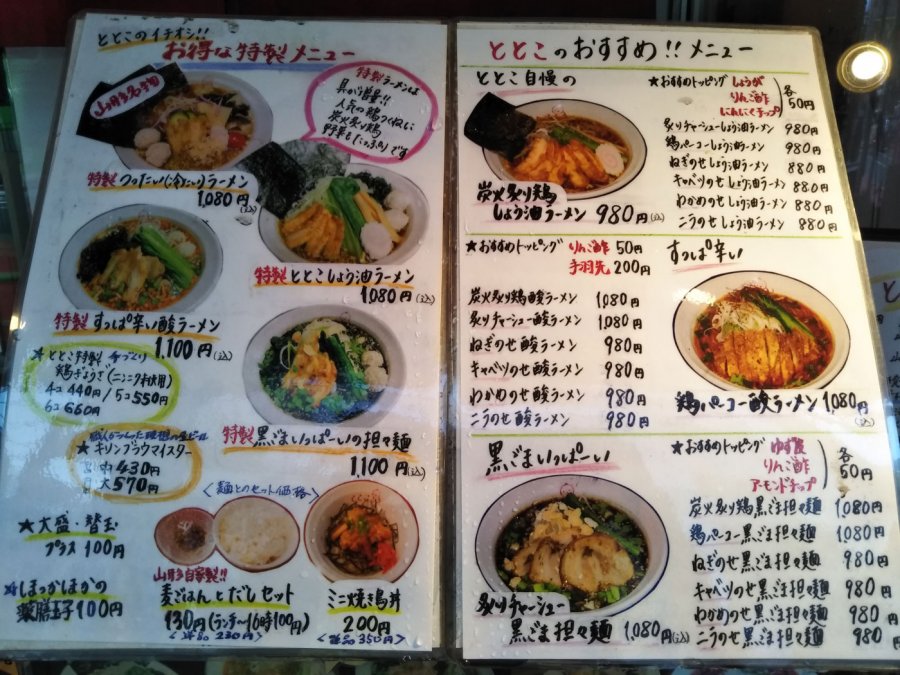 ととこのイチオシ!!
お得な特製メニュー
山形名物
特製ラーメンは
具が増量!!
人気の鶏つくねに
炭火炙り鶏
野菜もたっぷり です
特製 つったい(冷たい)ラーメン
1,080円(込)
特製 ととこしょう油ラーメン
1,080円(込)
特製 すっぱ辛い酸ラーメン
1,100円(込)
☆ととこ特製 手づくり
鶏ぎょうざ(ニンニク未使用)
4コ 440円/5コ 550円
6コ 660円
特製 黒ごまいっぱーいの担々麺
1,100円(込)
★キリンブラウマイスター
中 430円
大 570円
<麺とのセット価格>
★大盛・替玉
プラス 100円
★ほっかほかの
薬膳玉子 100円
山形自家製!!
麦ごはんとだしセット
130円(ランチ〜16時100円)
<単品 230円>
ミニ焼き鳥丼
200円
<単品 350円>
ととこのおすすめ!!メニュー
ととこ自慢の
★おすすめトッピング しょうが
りんご酢
にんにくチップ
各
50円
炭火炙り鶏
しょう油ラーメン 980円(込)
炙りチャーシューしょう油ラーメン 980円
鶏パーコーしょう油ラーメン 980円
ねぎのせしょう油ラーメン 880円
キャベツのせしょう油ラーメン 880円
わかめのせしょう油ラーメン 880円
ニラのせしょう油ラーメン 980円
★おすすめトッピング りんご酢 50円
手羽先 200円
すっぱ辛い
炭火炙り鶏酸ラーメン 1,080円
炙りチャーシュー酸ラーメン 1,080円
ねぎのせ酸ラーメン 980円
キャベツのせ酸ラーメン 980円
わかめのせ酸ラーメン 980円
ニラのせ酸ラーメン 980円
鶏パーコー酸ラーメン 1,080円
(込)
黒ごまいっぱーい
★おすすめトッピング ゆず皮
りんご酢
アーモンドチップ
各
50円
炙りチャーシュー
黒ごま担々麺 1,080円(込)
炭火炙り鶏黒ごま担々麺 1,080円
鶏パーコー黒ごま担々麺 1,080円
ねぎのせ黒ごま担々麺 980円
キャベツのせ黒ごま担々麺 980円
わかめのせ黒ごま担々麺 980円
ニラのせ黒ごま担々麺 980円